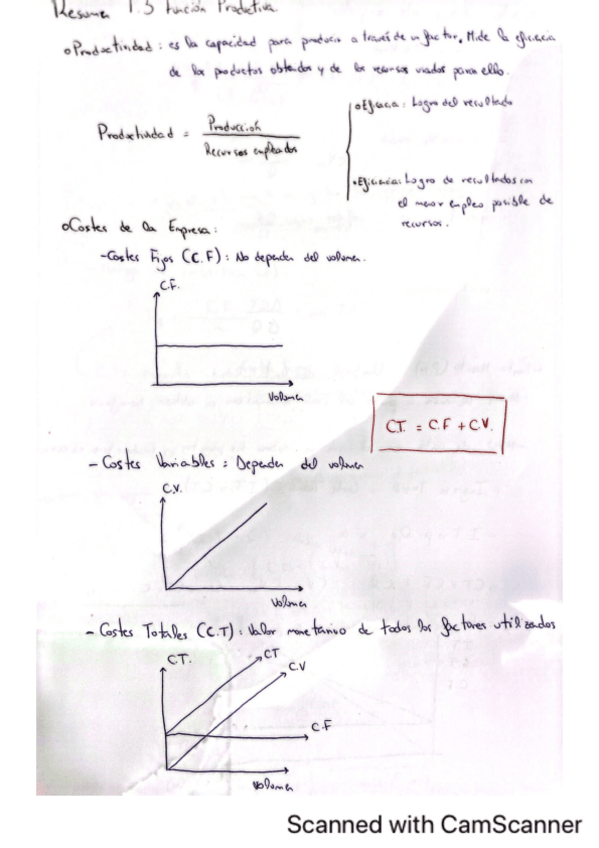 Resumen 1.3 Función Productiva
o Productividad: es la capacidad para producir a través de un factor. Mide la eficiencia
de los productos obtenidos y de los recursos usados para ello.
Productividad = Producción / Recursos empleados
o Eficacia: Logro del resultado
• Eficiencia: Logro de resultados con
el menor empleo posible de
recursos.
o Costes de la Empresa:
- Costes Fijos (C.F): No depender del volumen.
C.F.
Volumen
CT. = C.F + C.V.
- Costes Variables = Depender del volumen
C.V.
Volumen
- Costes Totales (C.T): Valor monetario de todos los factores utilizados
C.T.
CT
C.V
C.F
Volumen
Scanned with CamScanner